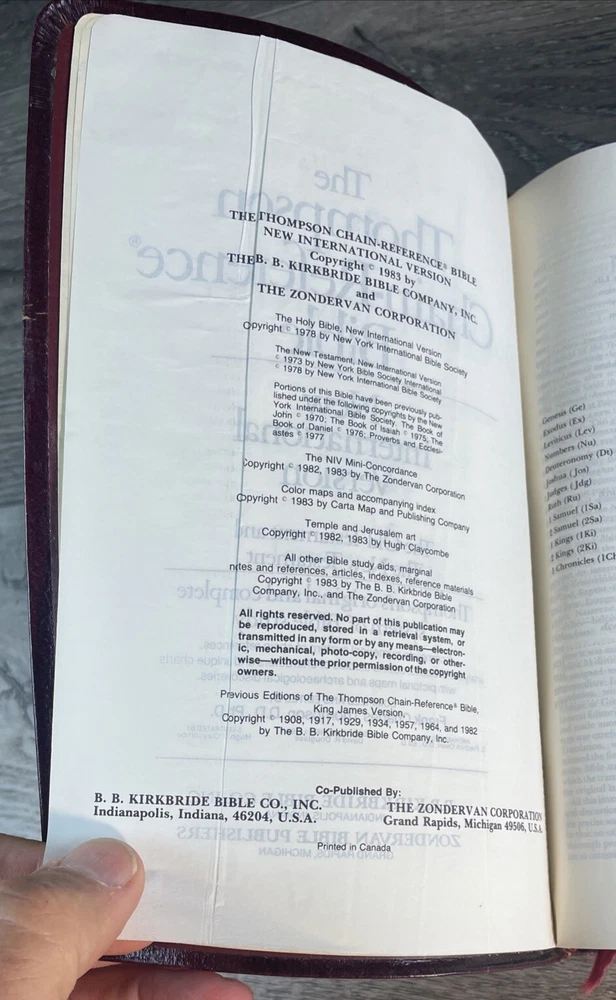 THE THOMPSON CHAIN-REFERENCE® BIBLE
NEW INTERNATIONAL VERSION
Copyright © 1983 by
THE B. B. KIRKBRIDE BIBLE COMPANY, INC.
and
THE ZONDERVAN CORPORATION
The Holy Bible, New International Version
Copyright © 1978 by New York International Bible Society
The New Testament, New International Version
© 1973 by New York Bible Society International
© 1978 by New York International Bible Society
Portions of this Bible have been previously pub-
lished under the following copyrights by the New
York International Bible Society. The Book of
John © 1970; The Book of Isaiah © 1975; The
Book of Daniel © 1976; Proverbs and Ecclesi-
astes © 1977
The NIV Mini-Concordance
Copyright © 1982, 1983 by The Zondervan Corporation
Color maps and accompanying index
Copyright © 1983 by Carta Map and Publishing Company
Temple and Jerusalem art
Copyright © 1982, 1983 by Hugh Claycombe
All other Bible study aids, marginal
notes and references, articles, indexes, reference materials
Copyright © 1983 by The B. B. Kirkbride Bible
Company, Inc., and The Zondervan Corporation
All rights reserved. No part of this publication may
be reproduced, stored in a retrieval system, or
transmitted in any form or by any means—electron-
ic, mechanical, photo-copy, recording, or other-
wise—without the prior permission of the copyright
owners.
Previous Editions of The Thompson Chain-Reference® Bible,
King James Version,
Copyright © 1908, 1917, 1929, 1934, 1957, 1964, and 1982
by The B. B. Kirkbride Bible Company, Inc.
Co-Published By:
B. B. KIRKBRIDE BIBLE CO., INC.
Indianapolis, Indiana, 46204, U.S.A.
THE ZONDERVAN CORPORATION
Grand Rapids, Michigan 49506, U.S.A.
Printed in Canada
Genesis (Ge)
Exodus (Ex)
Leviticus (Lev)
Numbers (Nu)
Deuteronomy (Dt)
Joshua (Jos)
Judges (Jdg)
Ruth (Ru)
1 Samuel (1Sa)
2 Samuel (2Sa)
1 Kings (1Ki)
2 Kings (2Ki)
1 Chronicles (1Ch